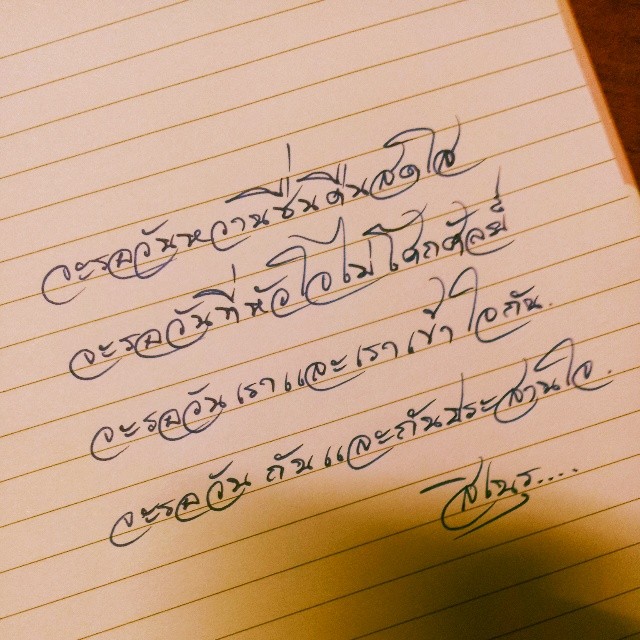 จะรอวันหวานชื่นคืนสดใส
จะรอวันที่หัวใจไม่โศกศัลย์
จะรอวันเราและเราเข้าใจกัน.
จะรอวัน ฉันและกันประสานใจ.